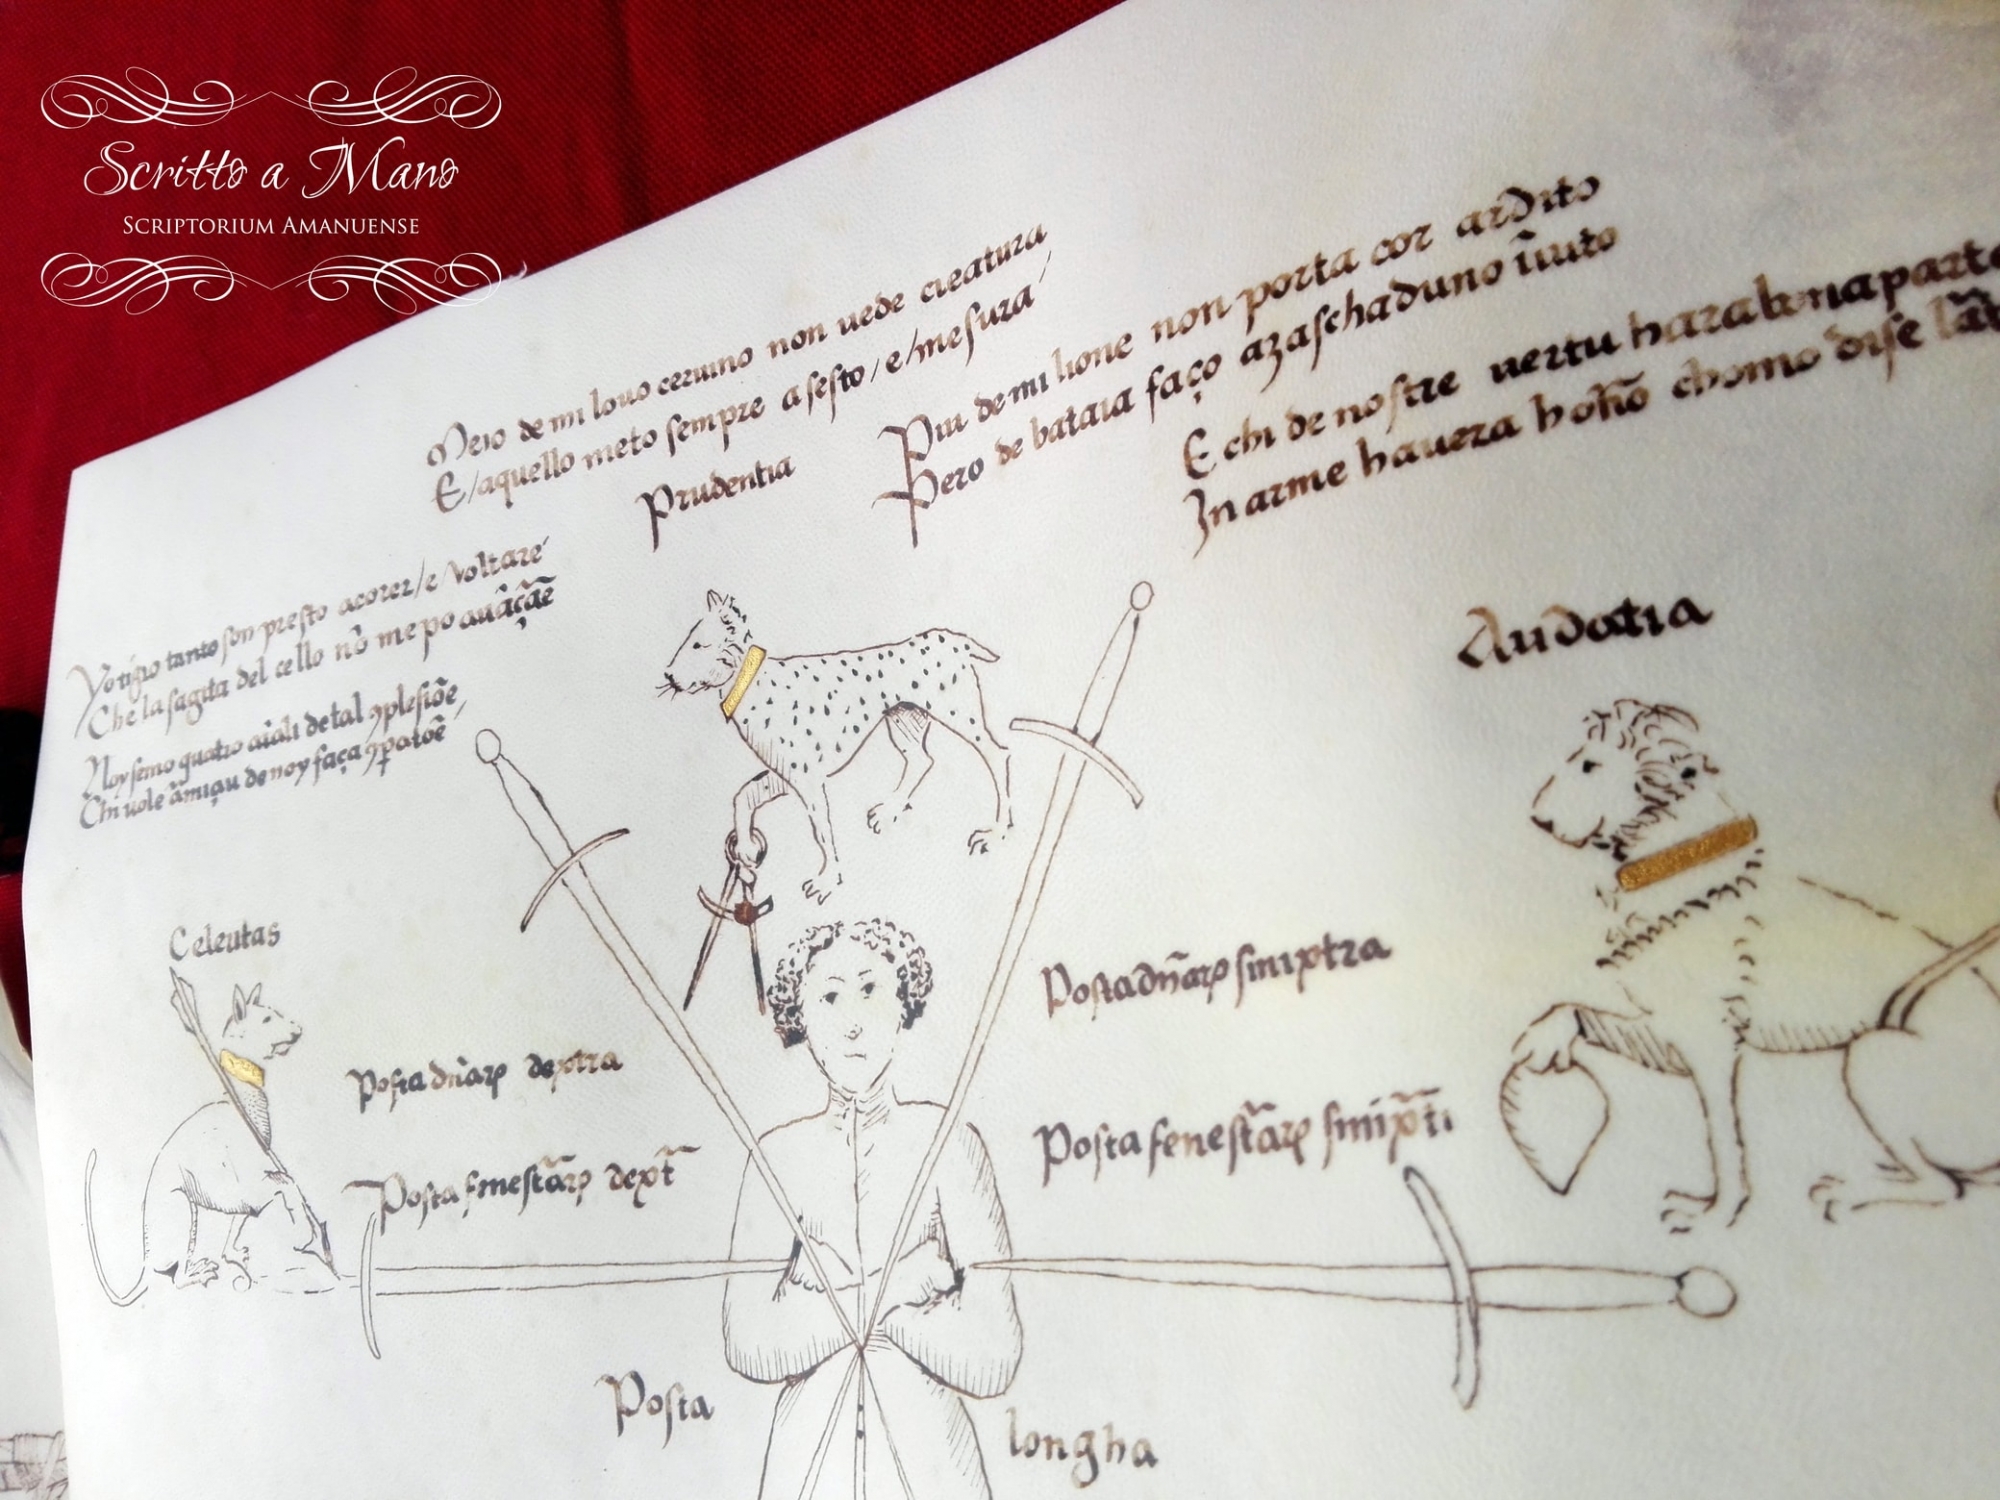 Scritto a Mano
SCRIPTORIUM AMANUENSE
Meio de mi louo ceruino non uede creatura
E/aquello meto sempre asesto/e/mesura
Prudentia
Piu de mi lione non porta cor ardito
Pero de bataia faço azaschaduno
E chi de nostre uertu hara bona parte
In arme hauera hoño chomo dise
Yo tigro tanto son presto a corer/e voltare
Che la sagita del cello nō me po auāçāe
Noy semo quatro aīali de tal 9plesiōe
Chi uole āmiçau de noy faça
Audatia
Celeutas
Posta dextra
Posta sinixtra
Posta
Posta
Posta
longha